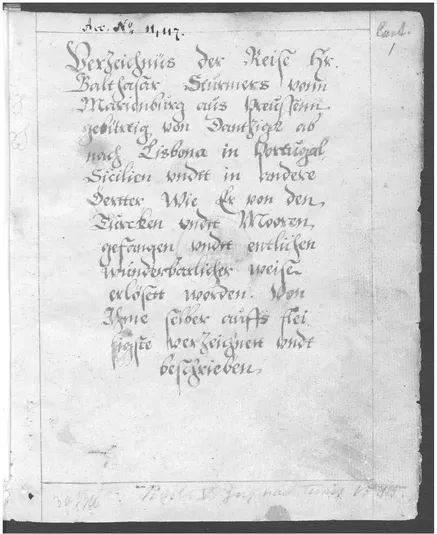 Acc. No. 11,117.
Cart.
1
Verzeichnüs der Reise Hr.
Balthasar Sturmers vonn
Marienburg aus Preussenn
gebürtig, von Dantzigk ab
nach Lisbona in Portugal,
Sicilien vndtt in andere
Oertter Wie Er von den
Turcken vndtt Mooren,
gefangen vndtt entlichen
wunderbarlicher weise
erlösett worden. Von
Ihme selber auffs flei
sigste verzeichnett vndt
beschrieben,